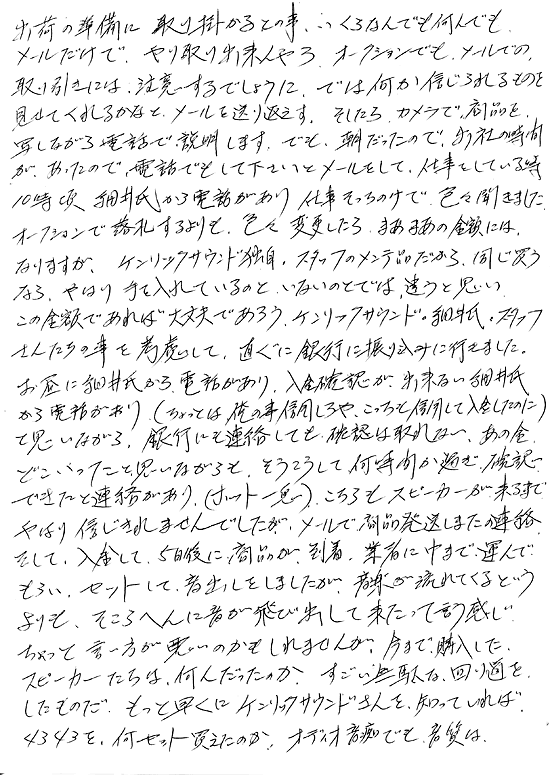 出荷の準備に取り掛かるとの事、いくらなんでも何んでも
メールだけで、やり取り出来んやろ、オークションでもメールでの
取り引きには、注意するでしょうに、では何か信じられるものを
見せてくれるかなと、メールを送り返す。そしたら、カメラで、商品を
写しながら電話で、説明します。でも、朝だったので、出社の時間
があったので、電話でもして下さいとメールをして、仕事をしている時
10時頃 細井氏から電話があり 仕事そっちのけで、色々聞きました
オークションで落札するよりも、色々変更したら、まあまあの金額には、
なりますが、ケンリックサウンド独自、スタッフのメンテ品だから、同じ買う
なら、やはり手を入れているのと、いないのとでは、違うと思い
この金額であれば大丈夫であろう、ケンリックサウンド。細井氏。スタッフ
さんたちの事を考慮して、直ぐに銀行に振り込みに行きました。
お昼に細井氏から、電話があり、入金確認が、出来ない細井氏
から電話があり、(ちょっとは俺の事信用しろや、こっちも信用して入金したのに)
と思いながら、銀行にも連絡しても、確認は取れない、あの金、
どこいった、と思いながらも、そうこうして、何時間か過ぎ、確認
できたと連絡があり、(ホット一息) こちらもスピーカーが来るまで
やはり信じきれませんでしたが、メールで、商品発送しましたの連絡
そして、入金して、5日後に、商品が、到着、業者に中まで運んで
もらい、セットして、音出しをしましたが、音楽が流れてくるという
よりも、そこらへんに音が飛び出して来たって言う感じ
ちょっと言い方が悪いのかもしれませんが、今まで購入した
スピーカーたちは、何んだったのか、すごい無駄な、回り道を
したものだ、もっと早くにケンリックサウンドさんを、知っていれば、
4343を、何セット買えたのか、オーディオ音痴でも、音質は、